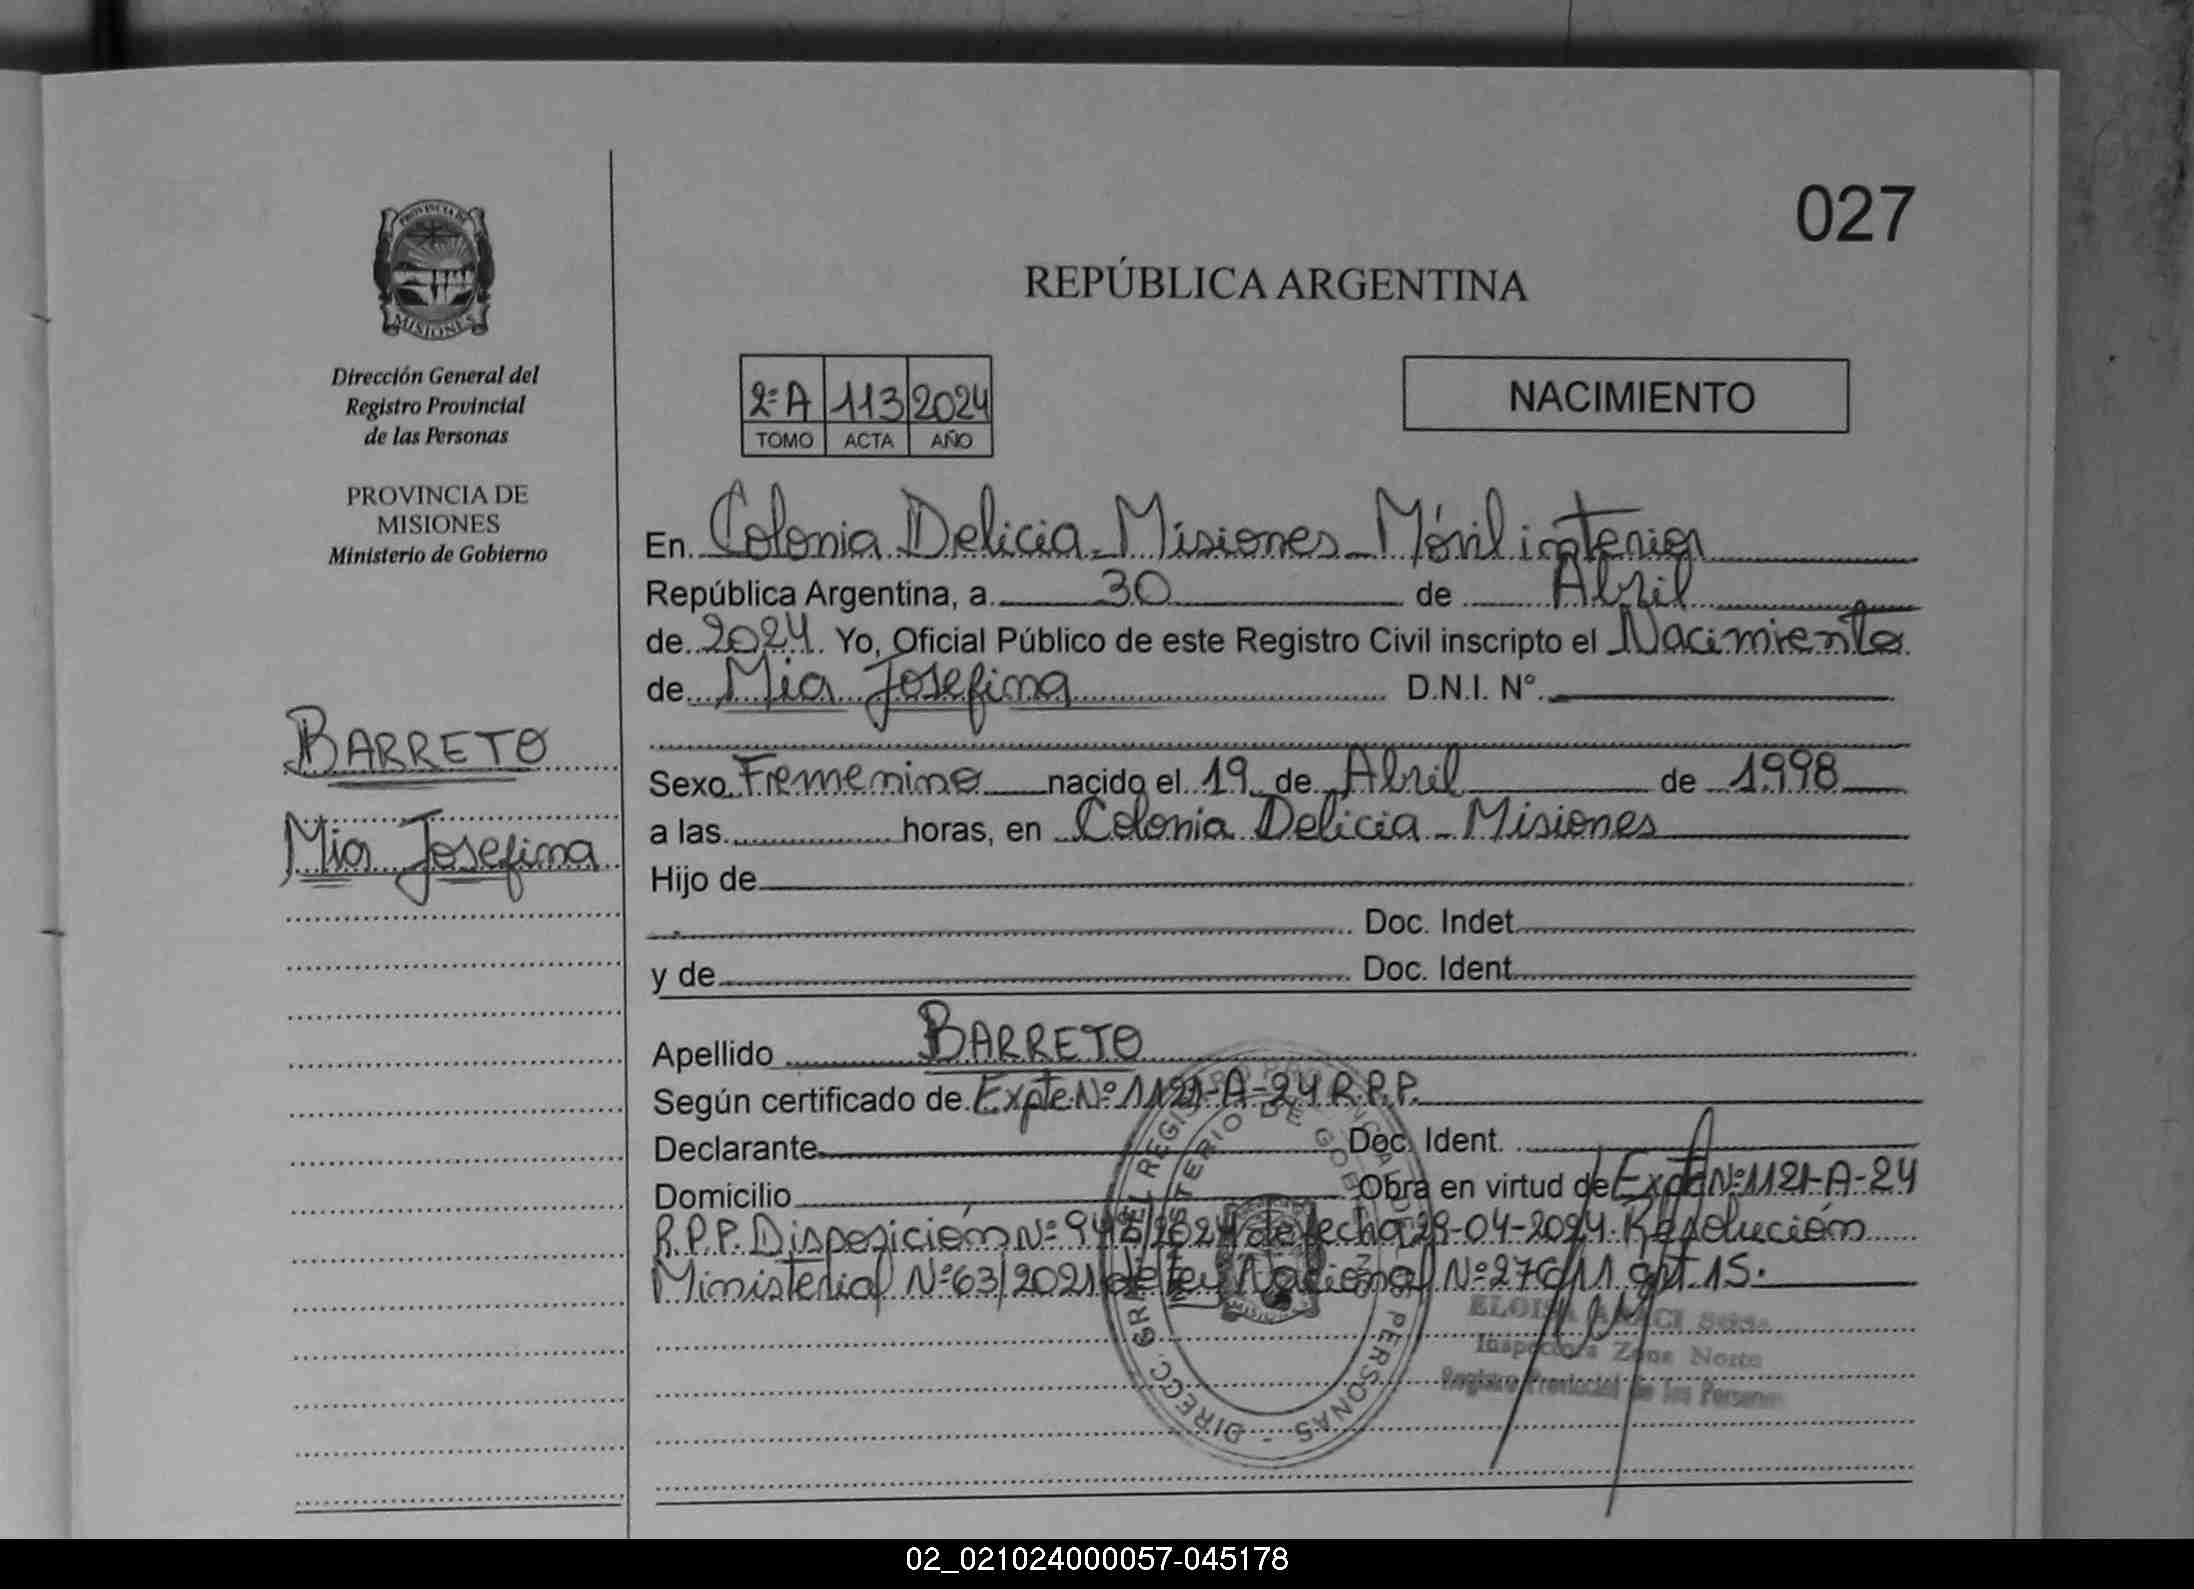 027
PROVINCIA DE
MISIONES
REPÚBLICA ARGENTINA
Dirección General del
Registro Provincial
de las Personas
PROVINCIA DE
MISIONES
Ministerio de Gobierno
2ºA 113 2024
TOMO ACTA AÑO
NACIMIENTO
En Colonia Delicia - Misiones - Móvil interior
República Argentina, a 30 de Abril
de 2024 Yo, Oficial Público de este Registro Civil inscripto el Nacimiento
de Mia Josefina D.N.I. Nº
BARRETO
Mia Josefina
Sexo Femenino nacido el 19 de Abril de 1998
a las horas, en Colonia Delicia - Misiones
Hijo de
Doc. Indet
y de Doc. Ident
Apellido BARRETO
Según certificado de Expte Nº 1121-A-24 R.P.P.
Declarante Doc. Ident.
Domicilio Obra en virtud de Expte Nº 1121-A-24
R.P.P. Disposición Nº /2024 de fecha 29-04-2024. Resolución
Ministerial Nº 63/2021 de Ley Nacional Nº 27611 art 15.
DIRECC. GRAL. DEL REGISTRO PROVINCIAL DE LAS PERSONAS
MINISTERIO DE GOBIERNO
MISIONES
ELOISA
Inspectora Zona Norte
Registro Provincial de las Personas
02_021024000057-045178